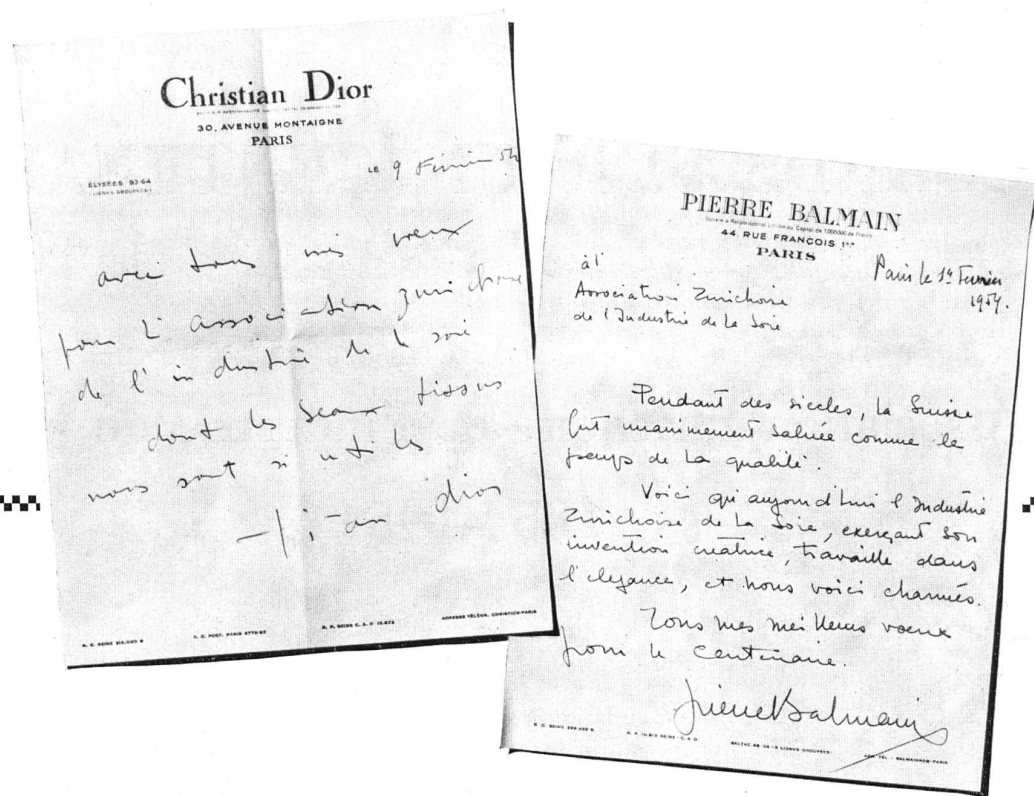 Christian Dior
30, AVENUE MONTAIGNE
PARIS
ÉLYSÉES 93-64
LE 9 Février 54
avec tous mes vœux
pour l'association zurichoise
de l'industrie de la soie
dont les beaux tissus
nous sont si utiles
dior
R. C. SEINE
C. C. POST. PARIS
ADRESSE TÉLÉGR. CHRISTIOR-PARIS
PIERRE BALMAIN
Société à Responsabilité Limitée au Capital de
44, RUE FRANÇOIS 1ER
PARIS
Paris le 1er Février
1954.
à l'
Association Zurichoise
de l'Industrie de la Soie
Pendant des siècles, la Suisse
fut unanimement saluée comme le
pays de la qualité.
Voici qu'aujourd'hui l'Industrie
Zurichoise de la Soie, exerçant son
invention créatrice, travaille dans
l'élégance, et nous voici charmés.
Tous mes meilleurs vœux
pour le Centenaire.
Pierre Balmain
R. C. SEINE
LIGNES GROUPÉES